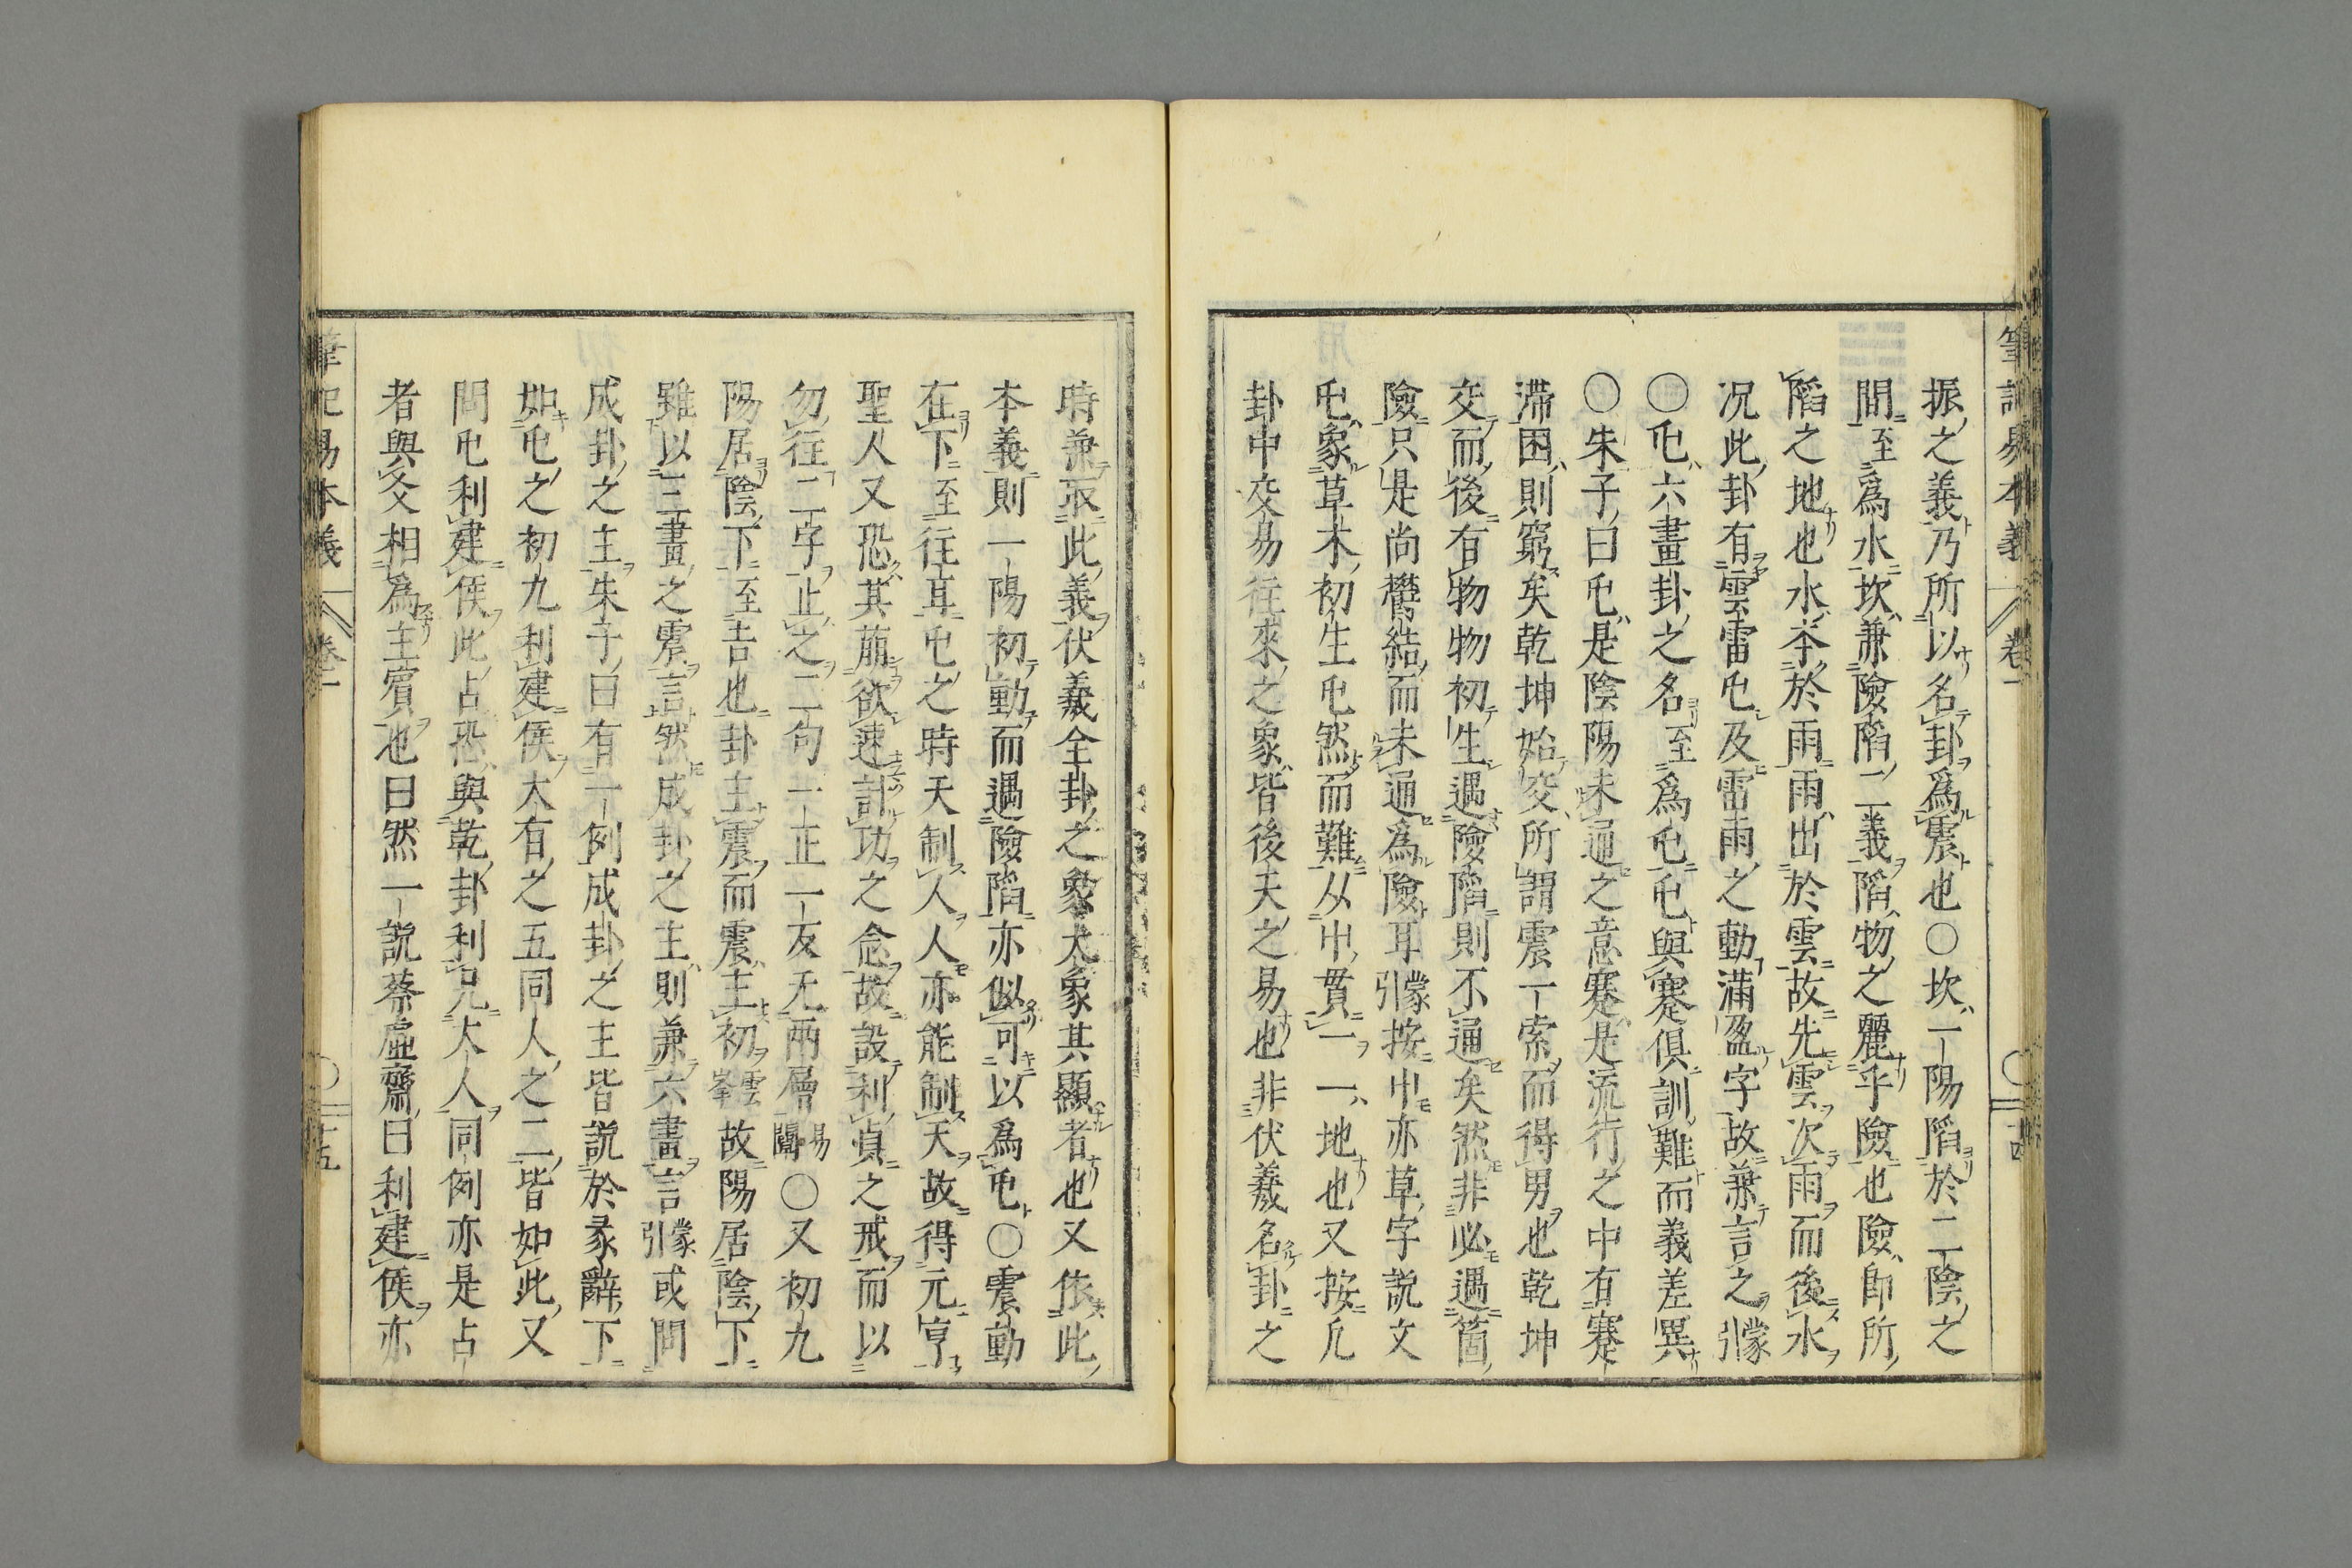 筆記易本義 卷一 十四
振之義乃所以名卦爲震也○坎一陽陷於二陰之
間至爲水坎兼險陷二義陷物之麗乎險也險即所
陷之地也水本於雨雨出於雲故先雲次雨而後水
况此卦有雲雷屯及雷雨之動滿盈字故兼言之引蒙
○屯六畫卦之名至爲屯屯與蹇俱訓難而義差異
○朱子曰屯是陰陽未通之意蹇是流行之中有蹇
滯困則窮矣乾坤始交所謂震一索而得男也乾坤
交而後有物物初生遇險陷則不通矣然非必遇箇
險只是尚鬱結而未通爲險耳引蒙按屮亦草字説文
屯象草木初生屯然而難从屮貫一一地也又按凡
卦中交易往來之象皆後天之易也非伏羲名卦之
時兼取此義伏羲全卦之象大象其顯者也又依此
本義則一陽初動而遇險陷亦似可以爲屯○震動
在下至往耳屯之時天制人人亦能制天故得元亨
聖人又恐其萠欲速計功之念故設利貞之戒而以
勿往二字止之二句一正一反无兩層易闡○又初九
陽居陰下至吉也卦主震而震主初雲峯故陽居陰下
雖以三畫之震言然成卦之主則兼六畫言引蒙或問
成卦之主朱子曰有一例成卦之主皆説於彖辭下
如屯之初九利建侯大有之五同人之二皆如此又
問屯利建侯此占恐與乾卦利見大人同例亦是占
者與爻相爲主賓也曰然一説蔡虚齋曰利建侯亦
筆記易本義 卷一 十五